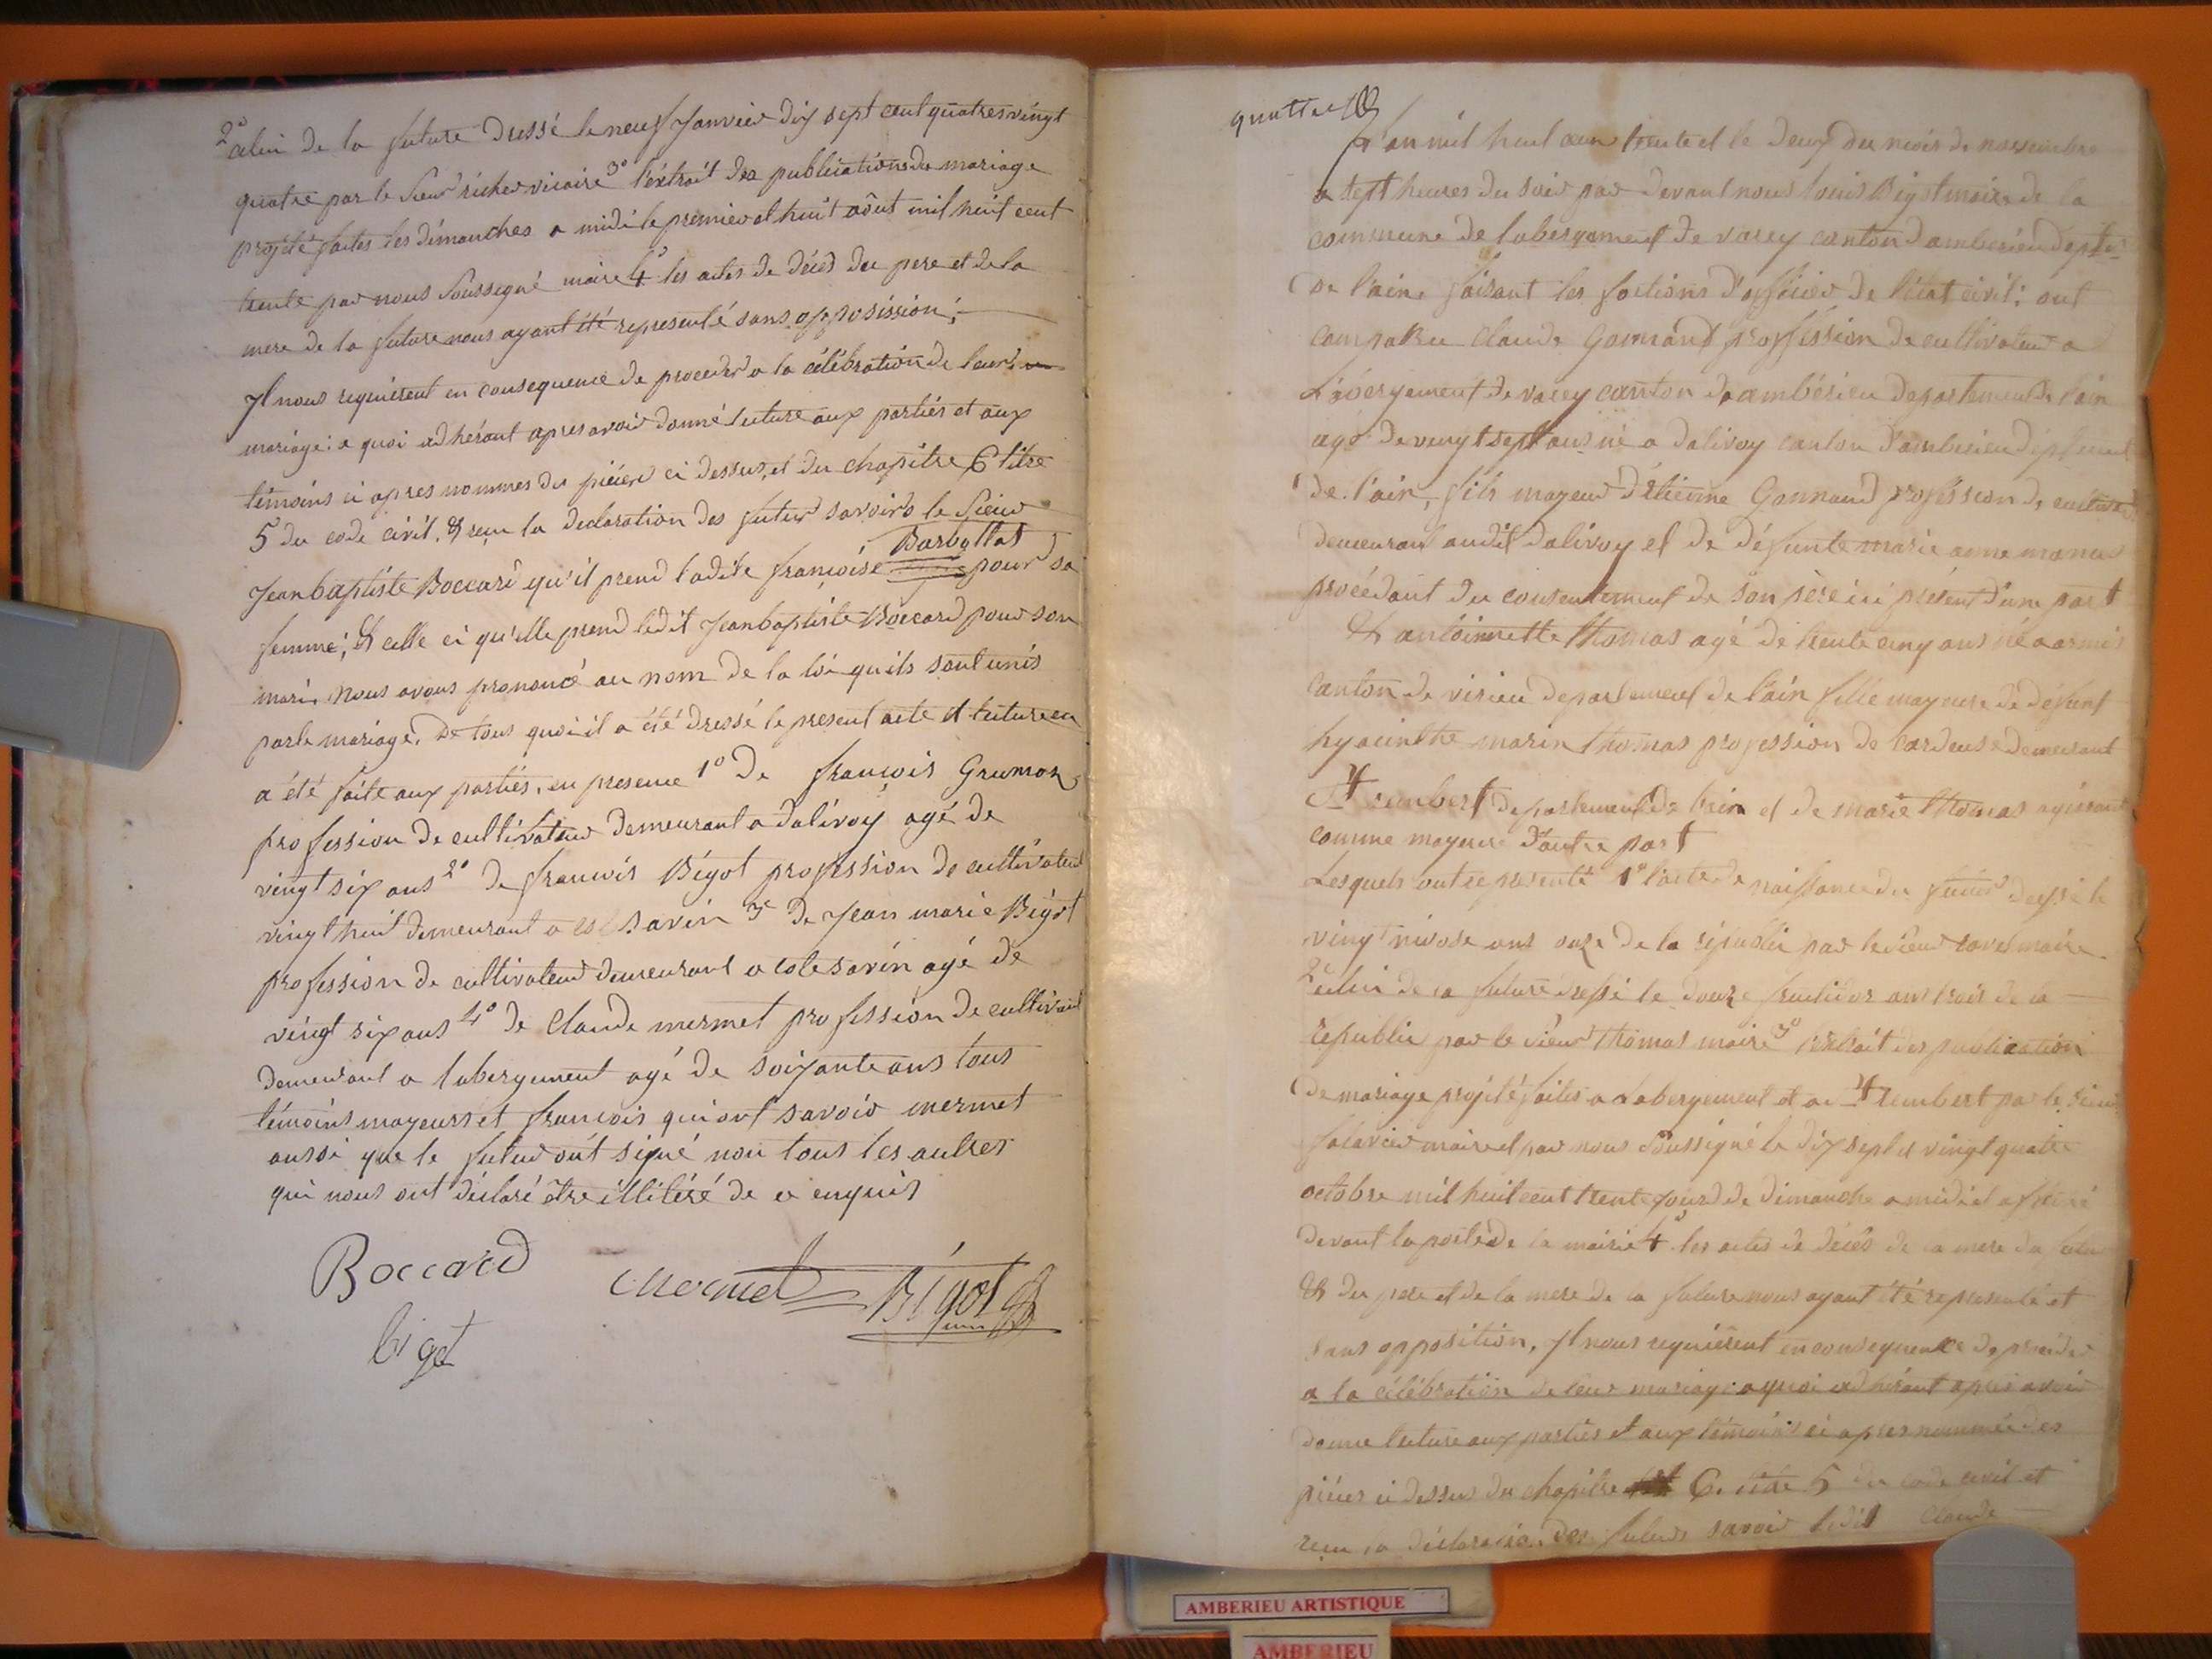 2° celui de la future dressé le neuf Janvier dix sept cent quatres vingt
quatre par le Sieur richer vicaire 3° l'extrait des publications du mariage
projété faites les dimanches a midi le premier et huit août mil huit cent
trente par nous Soussigné maire 4° les actes de décès du pere et de la
mere de la future nous ayant été representé sans opposission ;
Il nous requierent en consequence de proceder a la célébration de leur
mariage : a quoi adhérant apres avoir donné lecture aux partiés et aux
témoins ci apres nommes des piéces ci dessus, et du chapitre 6 titre
5 du code civil. & reçu la declaration des futur savoir le Sieur
Barbollat
Jean baptiste Boccard qu'il prend ladite françoise pour sa
femme ; & celle ci qu'elle prend ledit Jean baptiste Boccard pour son
mari, Nous avons prononcé au nom de la loi qu'ils sont unis
par le mariage. De tous quoi il a été dressé le present acte et lecture en
a été faite aux partiés, en presence 1° de françois Grumon
profession de cultivateur demeurant a dalivoy agé de
vingt six ans 2° de francois Bigot profession de cultivateur
vingt huit demeurant a col savin 3e de Jean marie Bigot
profession de cultivateur demeurant a cote savin agé de
vingt six ans 4° de Claude mermet profession de cultivateur
demeurant a labergement agé de soixante ans tous
témoins mayeurs et francois qui ont savoir mermet
aussi que le futur out signé non tous les autres
qui nous ont déclaré être illitéré de ce enquis
Boccard mermet Bigot
bigot
quatre
L'an mil huit cent trente et le deux du mois de novembre
a sept heures du soir par devant nous louis Bigot maire de la
commune de labergement de varey canton d'amberieu dept
de l'ain faisant les foctions d'officier de l'état civil : out
comparu Claude Gonnand proffession de cultivateur a
Labergement de varey canton de ambérieu departement de l'ain
agé de vingt sept ans né a dalivoy canton d'amberieu
de l'ain, fils mayeur d'étienne Gonnand profession de cultivateur
demeurant audit dalivoy et de défunte marie anne
procédant du consentement de son père ici présent d'une part
& antoinette thomas agé de trente cinq ans né a
canton de virieu departement de l'ain fille mayeure de défunt
hyacinthe marin thomas profession de cardeur demeurant
St rembert departement de l'ain et de marie thomas agissant
comme mayeure d'autre part
Lesquels ont representé 1° l'acte de naissance du futur dressé le
vingt nivose ans onze de la républic par le Sieur maire
2° celui de la future dressé le douze fructidor ans trois de la
republic par le sieur thomas maire 3° l'extrait des publication
de mariage projété faites a labergement et a St rembert par le sieur
maire et par nous Soussigné le dix sept et vingt quatre
octobre mil huit cent trente jours de dimanche a midi et affiché
devant la porte de la mairie 4° les actes de décés de la mere du futur
& du pere et de la mere de la future nous ayant été representé et
sans opposition, Il nous requierent en consequence de proceder
a la célébration de leur mariage : a quoi adhérant aprés avoir
donné lecture aux partiés et aux témoins ci apres nommés des
piéces ci dessus du chapitre 6. titre 5 du code civil et
reçu la déclaration des futurs savoir ledit Claude
AMBERIEU ARTISTIQUE
AMBERIEU